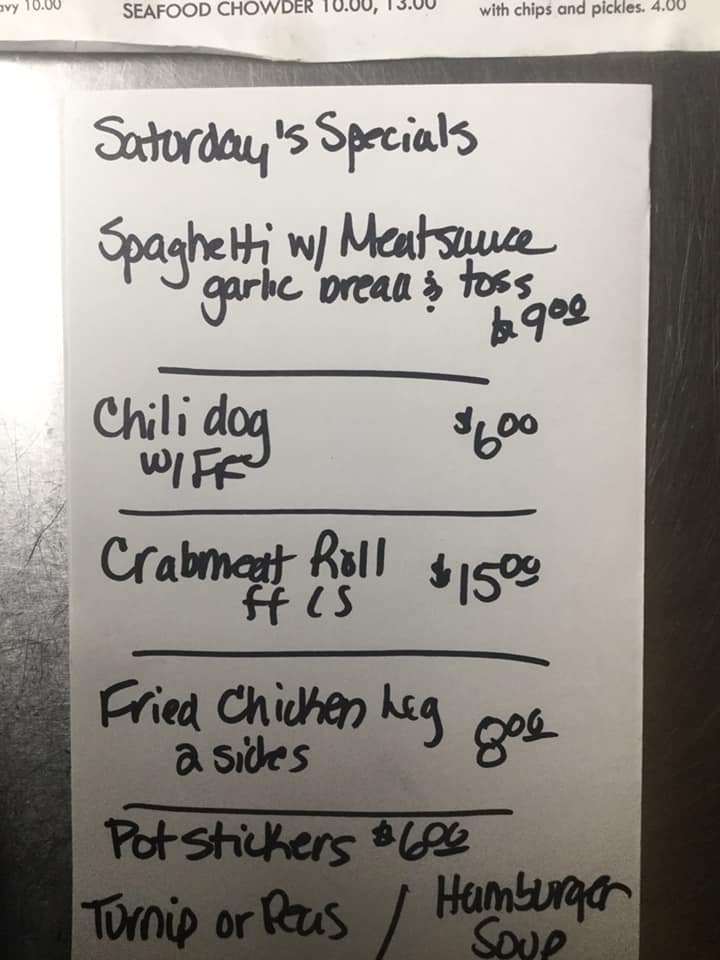 avy 10.00 SEAFOOD CHOWDER 10.00, 13.00 with chips and pickles. 4.00
Saturday's Specials
Spaghetti w/ Meatsauce
garlic bread & toss
$9.00
Chili dog $6.00
w/ FF
Crabmeat Roll $15.00
ff CS
Fried Chicken Leg 8.00
2 sides
Potstickers $6.00
Turnip or Peas / Hamburger
Soup